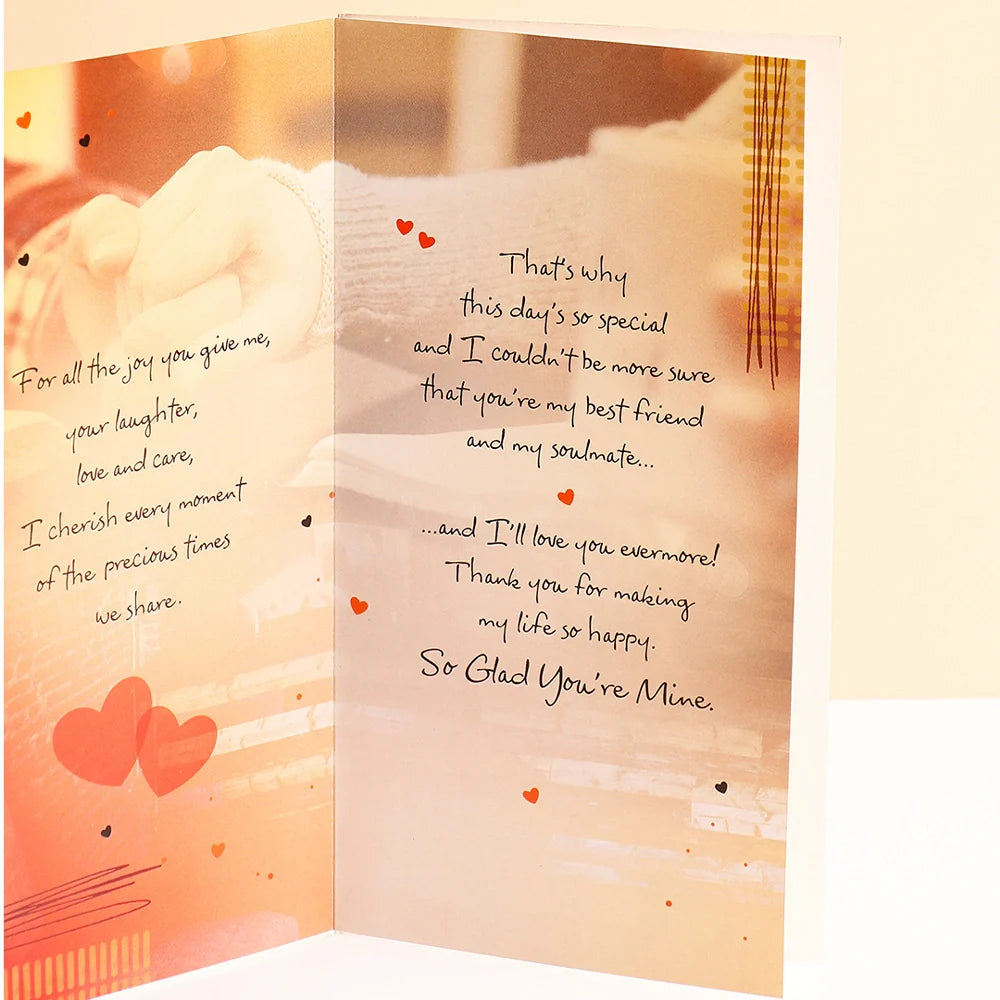 For all the joy you give me,
your laughter,
love and care,
I cherish every moment
of the precious times
we share.
That's why
this day's so special
and I couldn't be more sure
that you're my best friend
and my soulmate...
...and I'll love you evermore!
Thank you for making
my life so happy.
So Glad You're Mine.